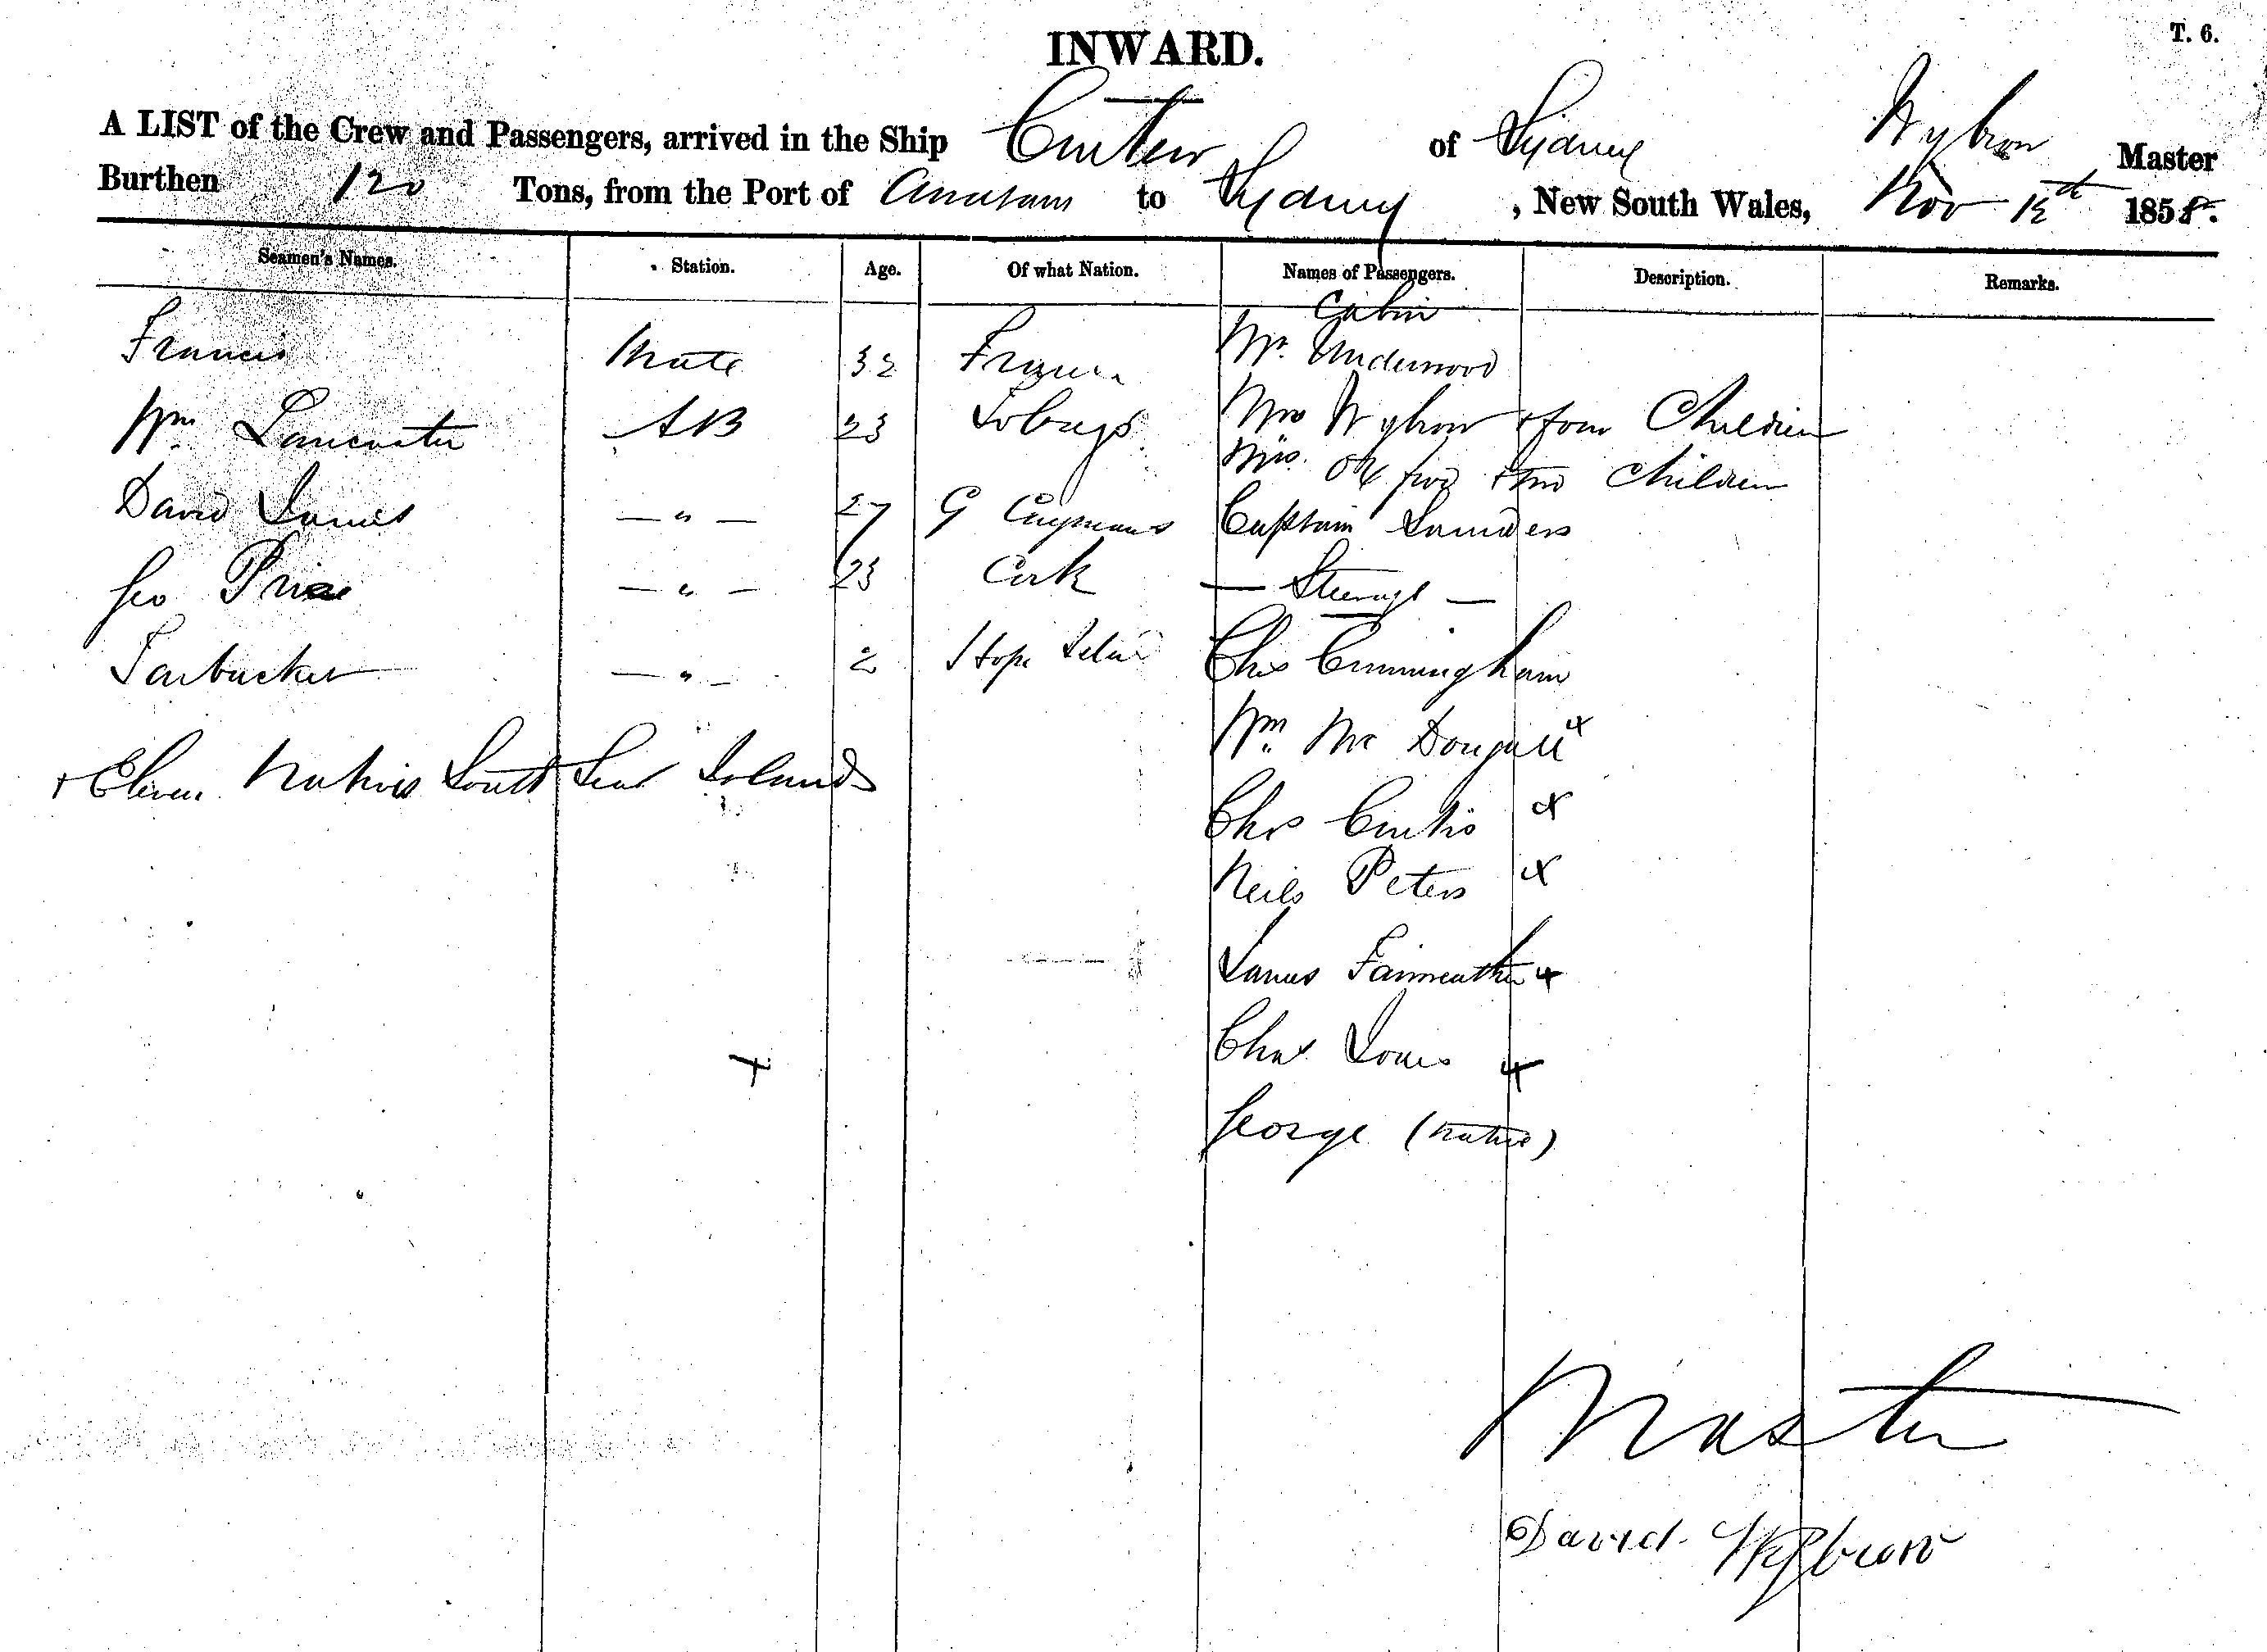 T. 6.
INWARD.
A LIST of the Crew and Passengers, arrived in the Ship Curlew of Sydney Wybrow Master
Burthen 120 Tons, from the Port of Anatam to Sydney, New South Wales, Nov 12th 1858.
Seamen's Names. Station. Age. Of what Nation. Names of Passengers. Description. Remarks.
Cabin
Francis Mate 32 France Mr. Underwood
Wm Lancaster AB 23 Mrs Wybrow & four Children
Mrs. & two Children
David James — " — 27 G Caymans Captain Saunders
Geo Price — " — 23 Cork — Steerage —
Tarbucket — " — 2 Hope Island Chs Cunningham
Wm Mc Dougall x
+ Eleven Natives South Sea Islands
Chs Curtis x
Neils Peters x
James Fairweather x
Chas Louis x
George (Native)
Master
David Wybrow